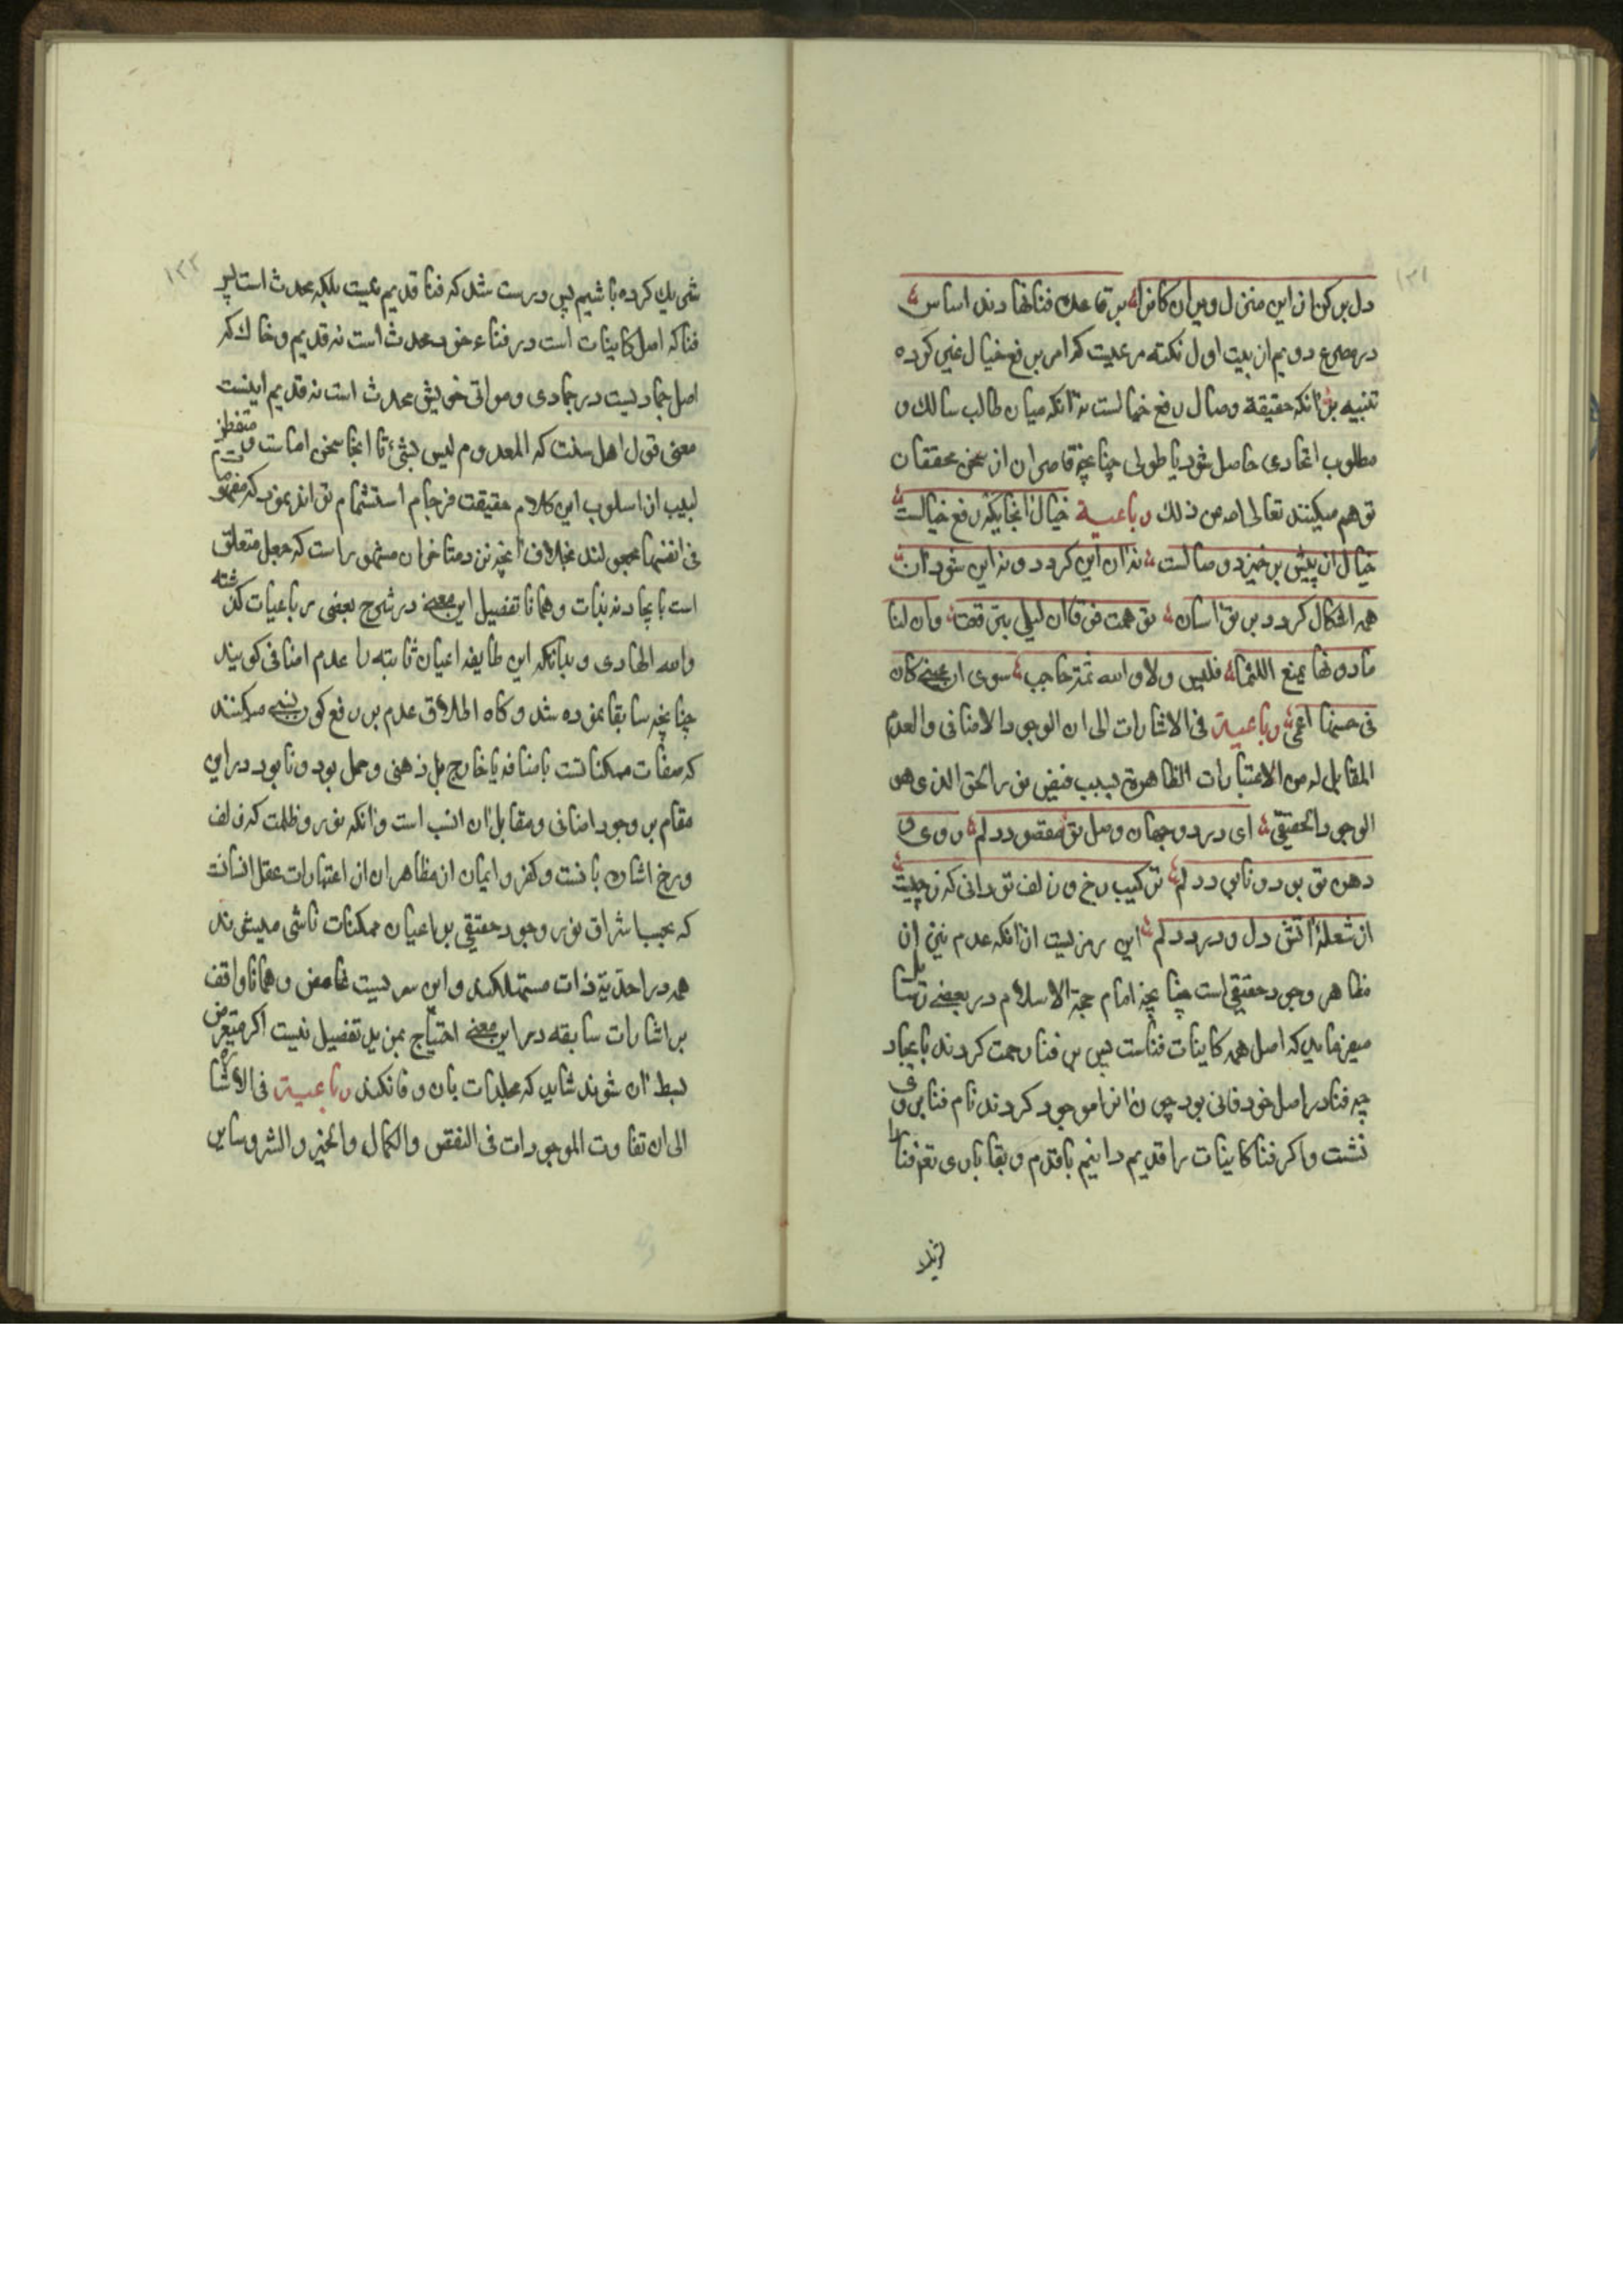 ۱۳۱
دل بر کن از این منزل ویران کانرا بر قاعده فنا نهادند اساس
در مصرع دویم از بیت اول نکته مرعیست که امر بر فع خیال غیر کرده
تنبیه بر آنکه حقیقة وصال رفع خیالست نه آنکه میان طالب سالک و
مطلوب اتحادی حاصل شود یا حلولی چنانچه قاصران از سخن محققان
توهم میکنند تعالی الله عن ذلک رباعیة خیال آنجا بکن رفع خیالست
خیال از پیش برخیزد وصالست نه آن این کردد و نه این شود آن
همه اشکال کردد بر تو آسان توهمت قدما ان لیلی تبرقعت وان لنا
ما دونها یمنع اللثما فلیس ولا والله ثمة حاجب سوی ان عینی کان
فی حسنها اعمی رباعیة فی الاشارات الی ان الوجود الاضافی والعدم
المقابل له من الاعتبارات الظاهرة بسبب فیض نور الحق الذی هو
الوجود الحقیقی ای در دو جهان وصل تو مقصود دلم وز وی و
دهن تو بود و نابود دلم ترکیب رخ و زلف تو دانی که ز چیست
از شعلهٔ آتش دل و دود دلم این رمزیست از آنکه عدم نیز از
مظاهر وجود حقیقی است چنانچه امام حجة الاسلام در بعضی رسائل
میفرماید که اصل همه کاینات فناست پس بر فنا رحمت کردند بایجاد
چه فنا در اصل خود فانی بود چون آنرا موجود کردند نام فنا بر وی
نشست و اکر فنا کاینات را قدیم دانیم با قدم و بقا باری تعم فنا را
۱۳۲
شریک کرده باشیم پس درست شد که فنا قدیم نیست بلکه محدث است پس
فنا که اصل کاینات است در فناء خود محدث است نه قدیم و خاک که
اصل جمادیست در جمادی و مواتی خویش محدث است نه قدیم اینست
معنی قول اهل سنت که المعدوم لیس بشیء تا اینجا سخن امامست و متفطن
لبیب از اسلوب این کلام حقیقت فرجام استشمام تواند نمود که
فی انفسها مجعولند بخلاف آنچه نزد متاخران مشهور است که جعل متعلق
است بایجاد نه بذات و همانا تفصیل این معنی در شرح بعضی رباعیات کذشته
والله الهادی و بدانکه این طایفه اعیان ثابته را عدم اضافی کویند
چنانچه سابقا نموده شد و کاه اطلاق عدم بر رفع کون نسبی میکنند
که صفات ممکناتست باضافه یا خارج بل ذهنی و حمل بود و نابود در این
مقام بر وجود اضافی و مقابل آن انسب است و آنکه نور و ظلمت که زلف
و رخ اشاره بآنست و کفر و ایمان از مظاهر آن از اعتبارات عقل انسانست
که بحسب اشراق نور وجود حقیقی بر اعیان ممکنات ناشی میشوند
همه در احدیة ذات مستهلکند و این سریست غامض و همانا واقف
بر اشارات سابقه در این معنی احتیاج بمزید تفصیل نیست اکر متعرض
بسط آن شوند شاید که مجلدات بآن وفا نکند رباعیة فی الاشارة
الی ان تفاوت الموجودات فی النقص والکمال والخیر والشر وسایر